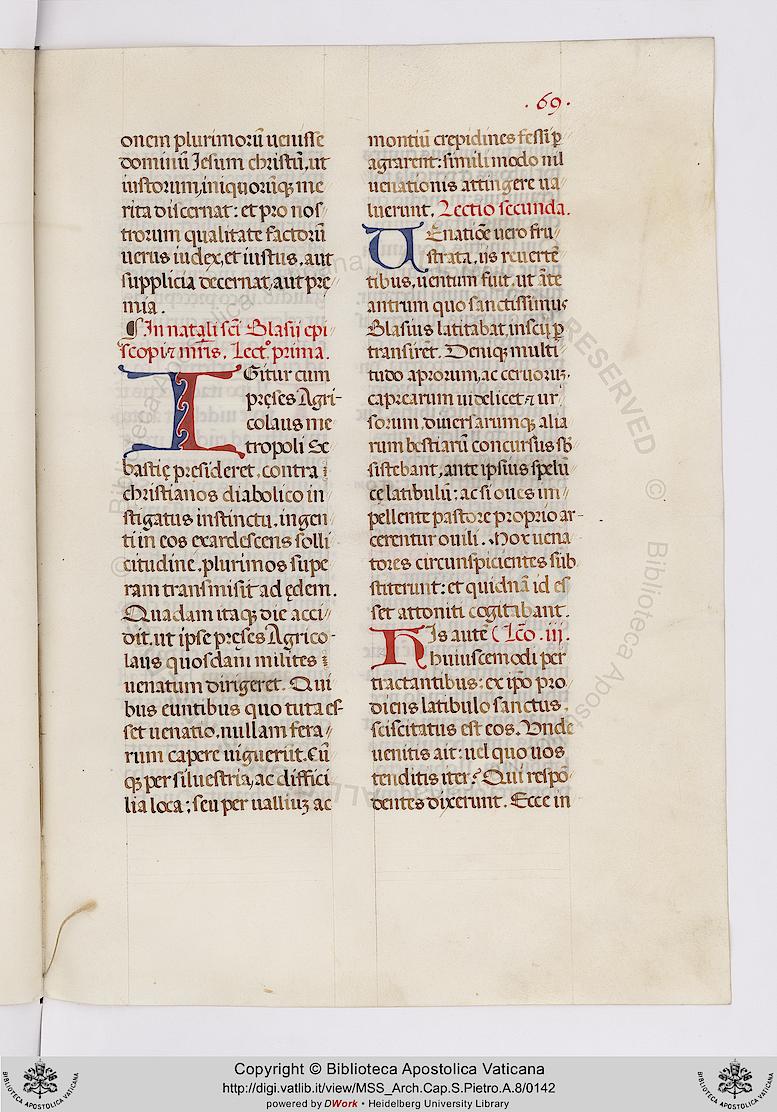 . 69 .
onem plurimorū uenisse
dominū Iesum christū, ut
iustorum, iniquorūq; me
rita discernat: et pro nos
trorum qualitate factorū
uerus iudex, et iustus, aut
supplicia decernat, aut pre
mia.
¶ In natali sc̄i Blasij epi
scopi ⁊ mr̄is. Lect.º prima.
IGitur cum
pręses Agri-
colaus me
tropoli Se
bastię presideret, contra
christianos diabolico in
stigatus instinctu, ingen
ti in eos exardescens solli
citudine, plurimos supe
ram transmisit ad ędem.
Quadam itaq; die acci
dit, ut ipse pręses Agrico-
laus quosdam milites
uenatum dirigeret. Qui
bus euntibus quo tuta es-
set uenatio, nullam fera
rum capere uiguerūt. Cū
q; per siluestria, ac diffici
lia loca; seu per ualliuʒ ac
montiū crepidines fessi ꝑ
agrarent: simili modo nil
uenationis attingere ua
luerunt. Lectio secunda.
UEnatiōe uero fru
strata, iis reuertē
tibus, uentum fuit, ut āte
antrum quo sanctissimus
Blasius latitabat, inscij ꝑ
transirēt. Deniq; multi
tudo aprorum, ac ceruoruʒ,
caprearum uidelicet ⁊ ur
sorum, diuersarumq; alia
rum bestiarū concursus sb̄
sistebant, ante ipsius spelū
cę latibulū: ac si oues im
pellente pastore proprio ar-
cerentur ouili. Mox uena
tores circunspicientes sub
stiterunt: et quidnā id es
set attoniti cogitabant.
HIs autē ( Lc̄o .iij.
huiuscemodi per
tractantibus: ex ip̄o pro
diens latibulo sanctus,
sciscitatus est eos. Vnde
uenitis ait: uel quo uos
tenditis iter? Qui respō
dentes dixerunt. Ecce in
Copyright © Biblioteca Apostolica Vaticana
http://digi.vatlib.it/view/MSS_Arch.Cap.S.Pietro.A.8/0142
powered by DWork • Heidelberg University Library
BIBLIOTECA APOSTOLICA VATICANA
BIBLIOTECA APOSTOLICA VATICANA